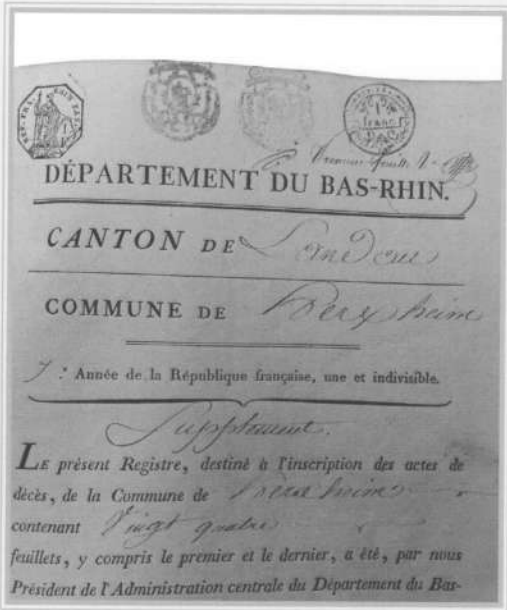 DÉPARTEMENT DU BAS-RHIN.
CANTON DE Landau
COMMUNE DE Herxheim
7.e Année de la République française, une et indivisible.
Supplément.
LE présent Registre, destiné à l'inscription des actes de
décès, de la Commune de Herxheim
contenant Vingt quatre
feuillets, y compris le premier et le dernier, a été, par nous
Président de l'Administration centrale du Département du Bas-